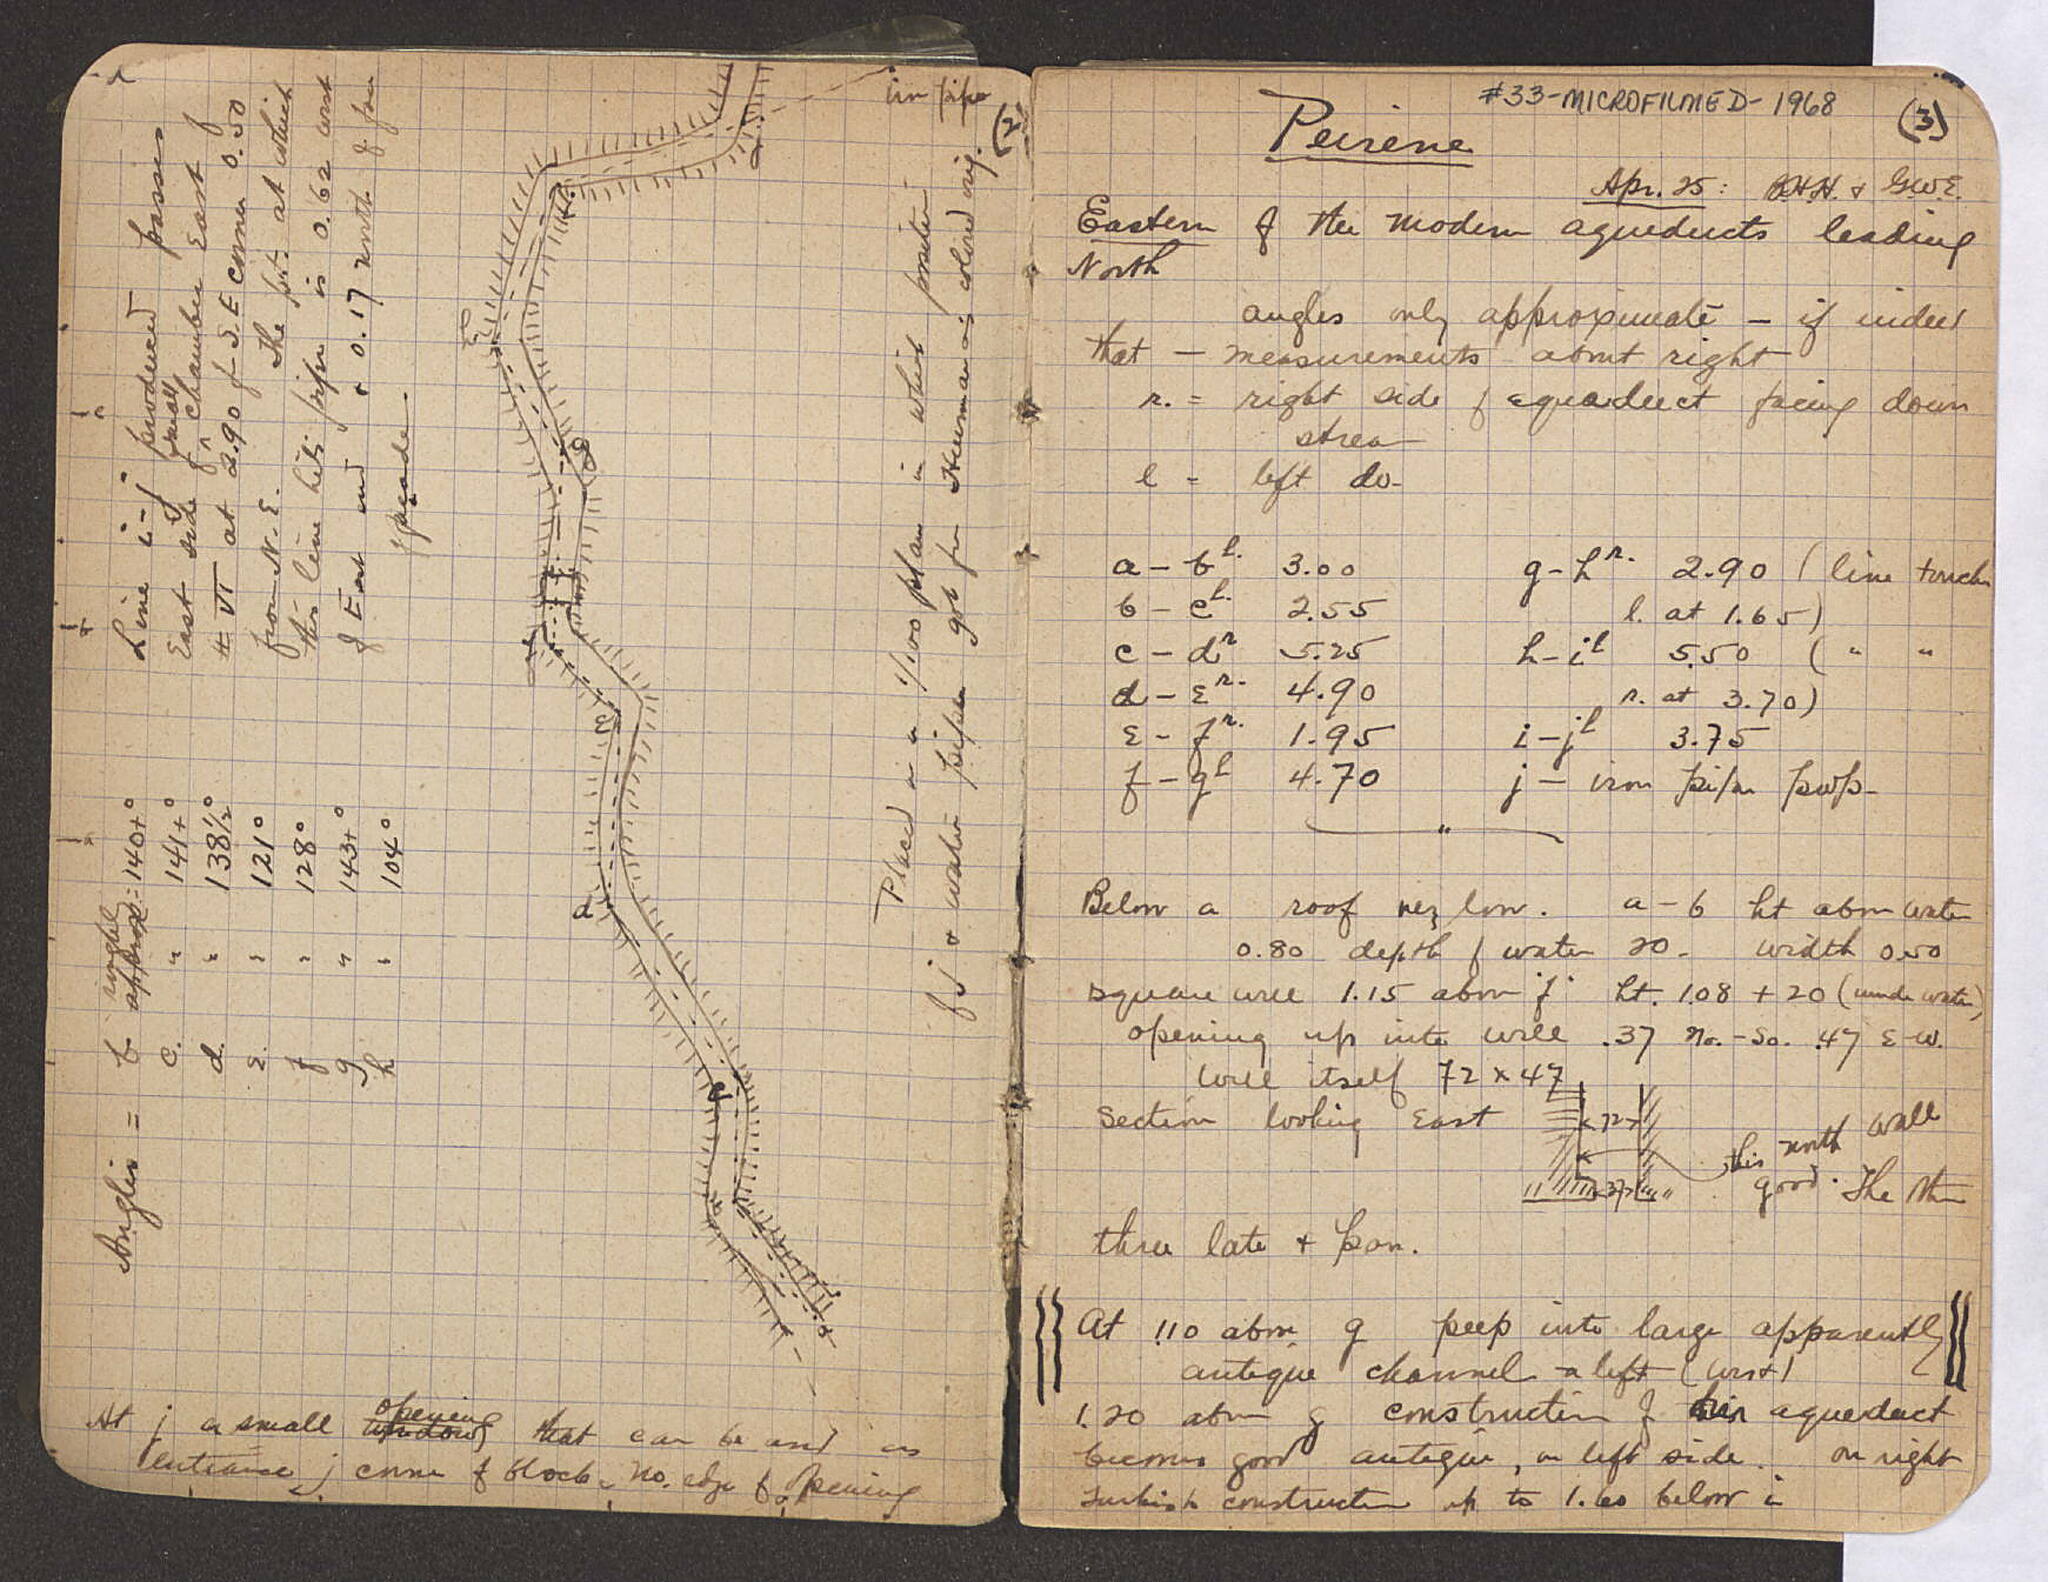 (2)
iron pipe
Line i-j produced passes
East side of small chamber East of
# VI at 2.90 f S.E corner 0.50
from N.E. The pt. at which
this line hits pipe is 0.62 west
of East end & 0.17 north of
façade.
Angles = b angle approx = 140+°
c. " 141+°
d. " 138½°
ε. " 121°
f " 128°
g " 143+°
h " 104°
Placed in a 1/100 plan in which position
of j & water pipes got from Heermance's colored orig.
j
h
i
g
f
ε
d
c
b
a
-d
-c
-b
-a
At j a small opening that can be used as
entrance j corner of block = No. edge of opening
#33-MICROFILMED-1968
(3)
Peirene
Apr. 25: B.H.H. & G.W.E.
Eastern of the modern aqueducts leading
North
angles only approximate - if indeed
that - measurements about right
r. = right side of aqueduct facing down
stream
l = left do-
a - b l. 3.00
b - c l. 2.55
c - d r 5.25
d - ε r. 4.90
ε - f r. 1.95
f - g l 4.70
g - h r. 2.90 (line touches
l. at 1.65)
h - i l 5.50 ( " "
r. at 3.70)
i - j l 3.75
j - iron pipe prop-
"
Below a roof very low. a - b ht above water
0.80 depth of water 20 - width 0.50
square well 1.15 above f ht. 1.08 + 20 (under water)
opening up into well .37 No.-So. .47 E-W.
Well itself 72 x 47
Section looking East
72
37
this north wall
good. The other
three late & poor.
At 1.10 above g peep into large apparently
antique channel on left (west)
1.20 above g construction of this aqueduct
becomes good antique, on left side. on right
Turkish construction up to 1.60 below i